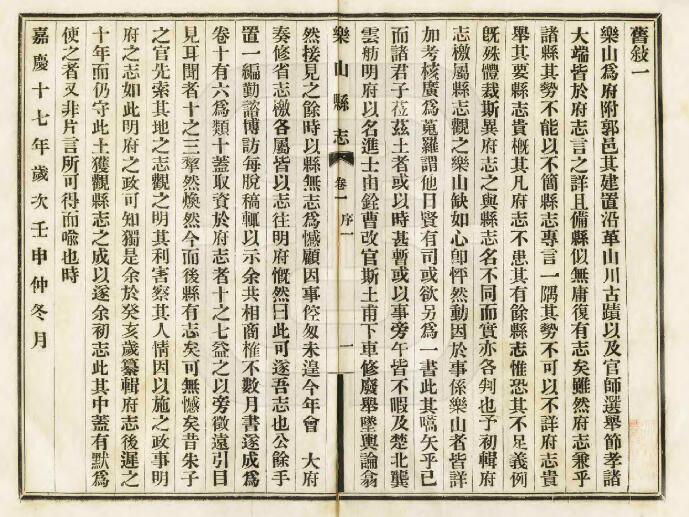 舊敍一
樂山爲府附郭邑其建置沿革山川古蹟以及官師選舉節孝諸
大端皆於府志言之詳且備縣似無庸復有志矣雖然府志兼乎
諸縣其勢不能以不簡縣志專言一隅其勢不可以不詳府志貴
舉其要縣志貴概其凡府志不患其有餘縣志惟恐其不足義例
旣殊體裁斯異府志之與縣志名不同而實亦各判也予初輯府
志檄屬縣志觀之樂山缺如心卽怦然動因於事係樂山者皆詳
加考核廣爲蒐羅謂他日賢有司或欲另爲一書此其嚆矢乎已
而諸君子莅茲土者或以時甚暫或以事旁午皆不暇及楚北龔
雲舫明府以名進士由銓曹改官斯土甫下車修廢舉墜輿論翕
樂山縣志
卷一 序
一
然接見之餘時以縣無志爲憾顧因事倥匆未遑今年會 大府
奏修省志檄各屬皆以志往明府慨然曰此可遂吾志也公餘手
置一編勤諮博訪每脫稿輒以示余共相商榷不數月書遂成爲
卷十有六爲類十蓋取資於府志者十之七益之以旁徵遠引目
見耳聞者十之三犂然煥然今而後縣有志矣可無憾矣昔朱子
之官先索其地之志觀之明其利害察其人情因以施之政事明
府之志如此明府之政可知獨是余於癸亥歲纂輯府志後遲之
十年而仍守此土獲觀縣志之成以遂余初志此其中蓋有默爲
使之者又非片言所可得而喻也時
嘉慶十七年歲次壬申仲冬月